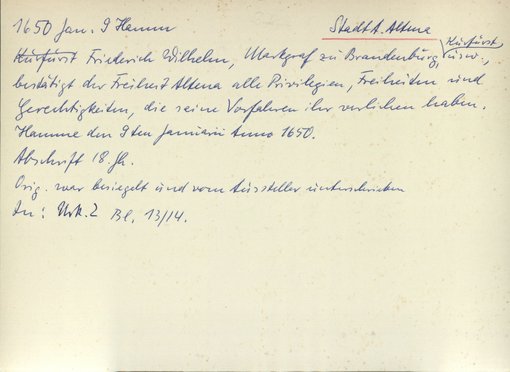 1650 Jan. 9 Hamm
Stadt A. Altena
Kurfürst Friederich Wilhelm, Markgraf zu Brandenburg, Kurfürst, usw.,
bestätigt der Freiheit Altena alle Privilegien, Freiheiten und
Gerechtigkeiten, die seine Vorfahren ihr verliehen haben.
Hamme den 9ten Januarii Anno 1650.
Abschrift 18. Jh.
Orig. war besiegelt und vom Aussteller unterschrieben
In: Urk. 2 Bl. 13/14.